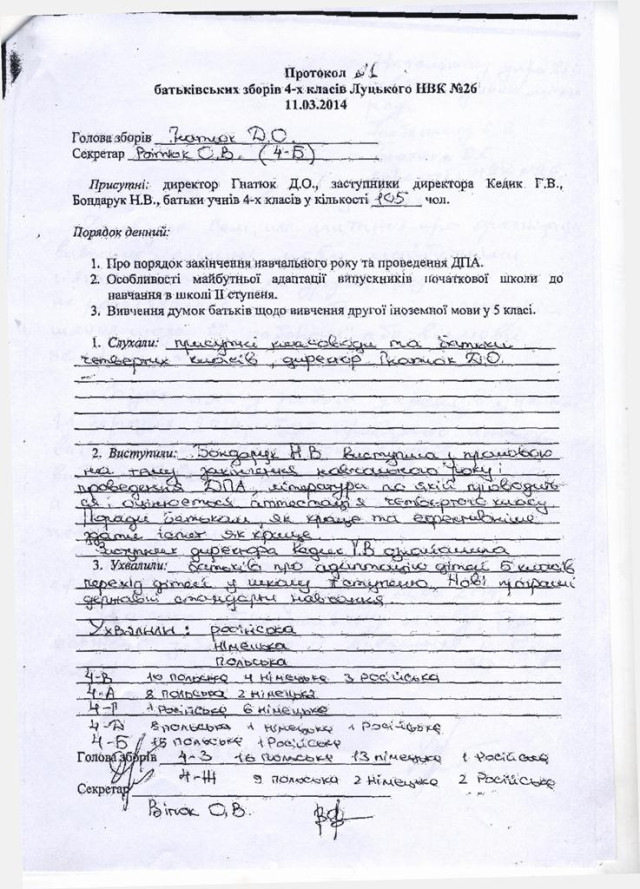 Протокол №1
батьківських зборів 4-х класів Луцького НВК №26
11.03.2014
Голова зборів Гнатюк Д.О.
Секретар О.В. (4-Б)
Присутні: директор Гнатюк Д.О., заступники директора Кедик Г.В.,
Бондарук Н.В., батьки учнів 4-х класів у кількості 105 чол.
Порядок денний:
1. Про порядок закінчення навчального року та проведення ДПА.
2. Особливості майбутньої адаптації випускників початкової школи до
навчання в школі ІІ ступеня.
3. Вивчення думок батьків щодо вивчення другої іноземної мови у 5 класі.
1. Слухали: присутні класоводи та батьки
четвертих класів, директор Гнатюк Д.О.
2. Виступили: Бондарук Н.В виступила з промовою
на тему закінчення навчального року і
проведення ДПА, література по якій проводить
ся і оцінюється аттестація четвертого класу
Поради батькам, як краще та ефективніше
здати іспит як краще
Заступник директора Кедик Г.В ознайомила
3. Ухвалили: батьків про адаптацію дітей 5 класів
перехід дітей у школу ступеню. Нові програми
державні стандарти навчання
Ухвалили: російська
німецька
польська
4-В 10 польська 4 німецька 3 російська
4-А 8 польська 2 німецька
4-Г 1 російська 6 німецька
4-Д 8 польська 1 німецька 1 російська
4-Б 15 польська 1 російська
Голова зборів 4-З 16 польська 13 німецька 1 російська
4-Ж 9 польська 2 німецька 2 російська
Секретар
О,В.